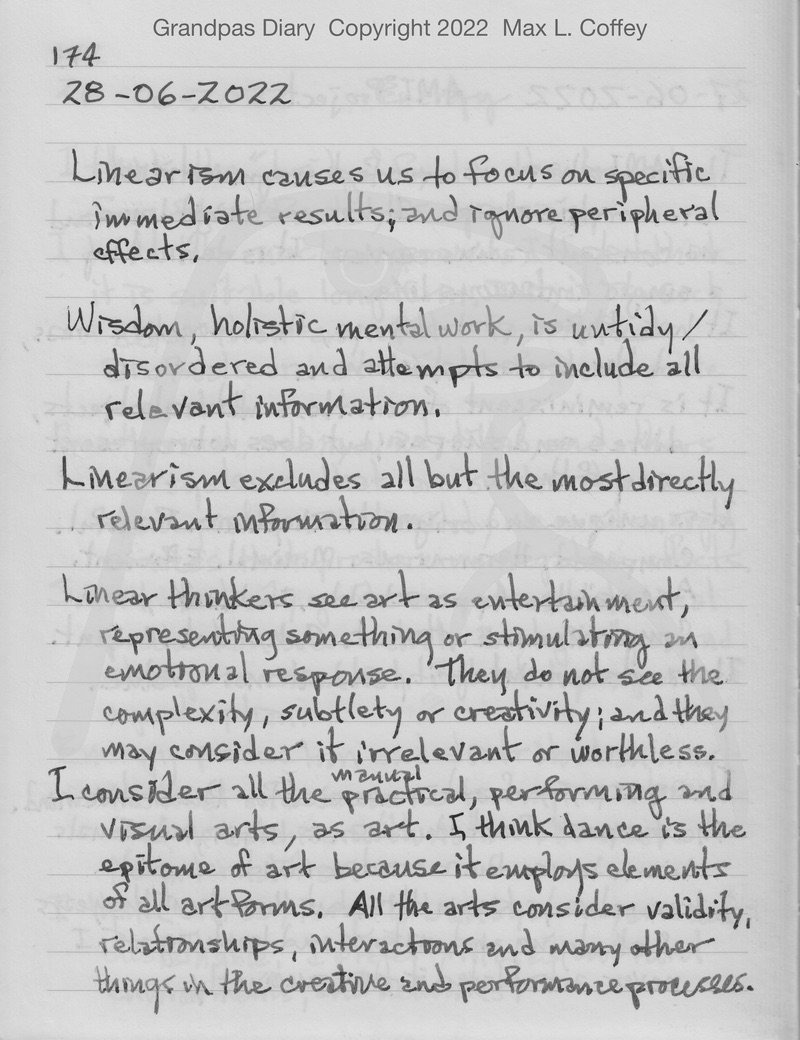 Grandpas Diary Copyright 2022 Max L. Coffey
174
28-06-2022
Linearism causes us to focus on specific
immediate results; and ignore peripheral
effects.
Wisdom, holistic mental work, is untidy/
disordered and attempts to include all
relevant information.
Linearism excludes all but the most directly
relevant information.
Linear thinkers see art as entertainment,
representing something or stimulating an
emotional response. They do not see the
complexity, subtlety or creativity; and they
may consider it irrelevant or worthless.
manual
I consider all the practical, performing and
visual arts, as art. I think dance is the
epitome of art because it employs elements
of all art forms. All the arts consider validity,
relationships, interactions and many other
things in the creative and performance processes.